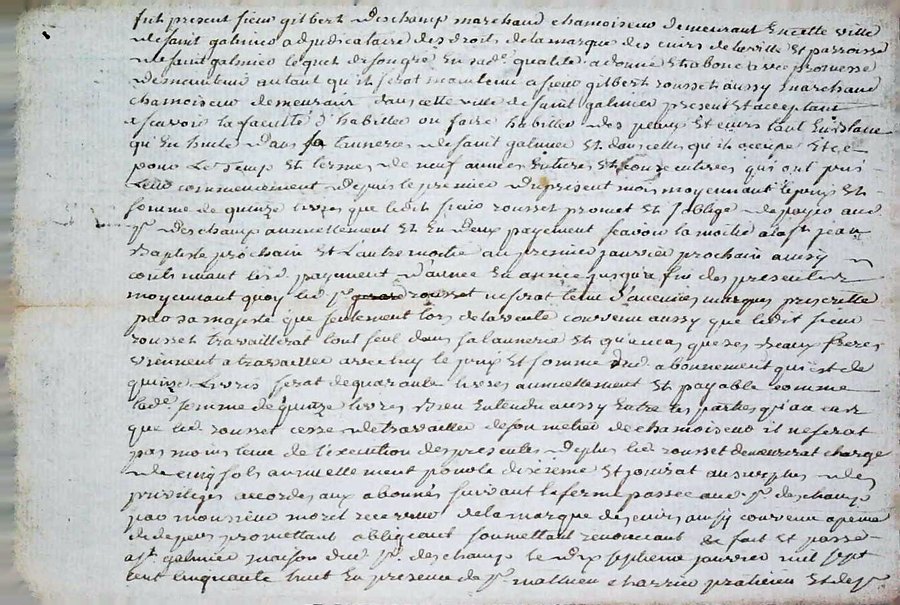 fut present sieur gilbert deschamp marchand chamoiseur demeurant en cette ville
de saint galmier adjudicataire des droits de la marque des cuirs de la ville et parroisse
de saint galmier lequel de son gré en sade qualité a donné et abonné avec promesse
de maintenir autant qu'il serat maintenu a sieur gilbert rousset aussy marchand
chamoiseur demeurant dans cette ville de saint galmier present et acceptant
a scavoir la faculté d'habiller ou faire habiller des peaux et cuirs tant en blanc
qu'en huile dans sa tannerie de saint galmier et dans celles qu'il occupe et ce
pour le temp et termes de neuf années entieres et consecutives qui ont pris
leur commencement depuis le premier du present mois moyennant le prix et
somme de quinze livres que ledit sieur rousset promet et s'oblige de payer aud
sr deschamp annuellement et en deux payement scavoir la moitié a la st jean
baptiste prochain et l'autre moitié au premier janvier prochain aussy
continuant led payement d'année en année jusqu'a fin des presentes
moyennant quoy led sr rousset ne serat tenu d'aucunes marques prescritte
par sa majesté que seulement lors de la vente convenu aussy que ledit sieur
rousset travaillerat tout seul dans sa tannerie et qu'en cas que ses beaux freres
viennent a travailler avec luy le prix et somme dud abonnement qui est de
quinze livres serat de quarante livres annuellement et payable comme
lade somme de quinze livres bien entendu aussy entre les parties qu'au cas
que led rousset cesse de travailler de son metier de chamoiseur il ne serat
pas moins tenu de l'execution des presentes de plus led rousset demeurerat chargé
de cinq sols annuellement pour le dixieme et jouirat au surplus des
privileges accordes aux abonnés suivant la ferme passée aud sr deschamp
par monsieur moret receveur de la marque des cuirs aussy convenu a peine
de depens promettant obligeant soumettant renoncant & fait et passé
a st galmier maison dud sr deschamp le dix septieme janvier mil sept
cent cinquante huit en presence de sr mathieu charrin praticien et de sr